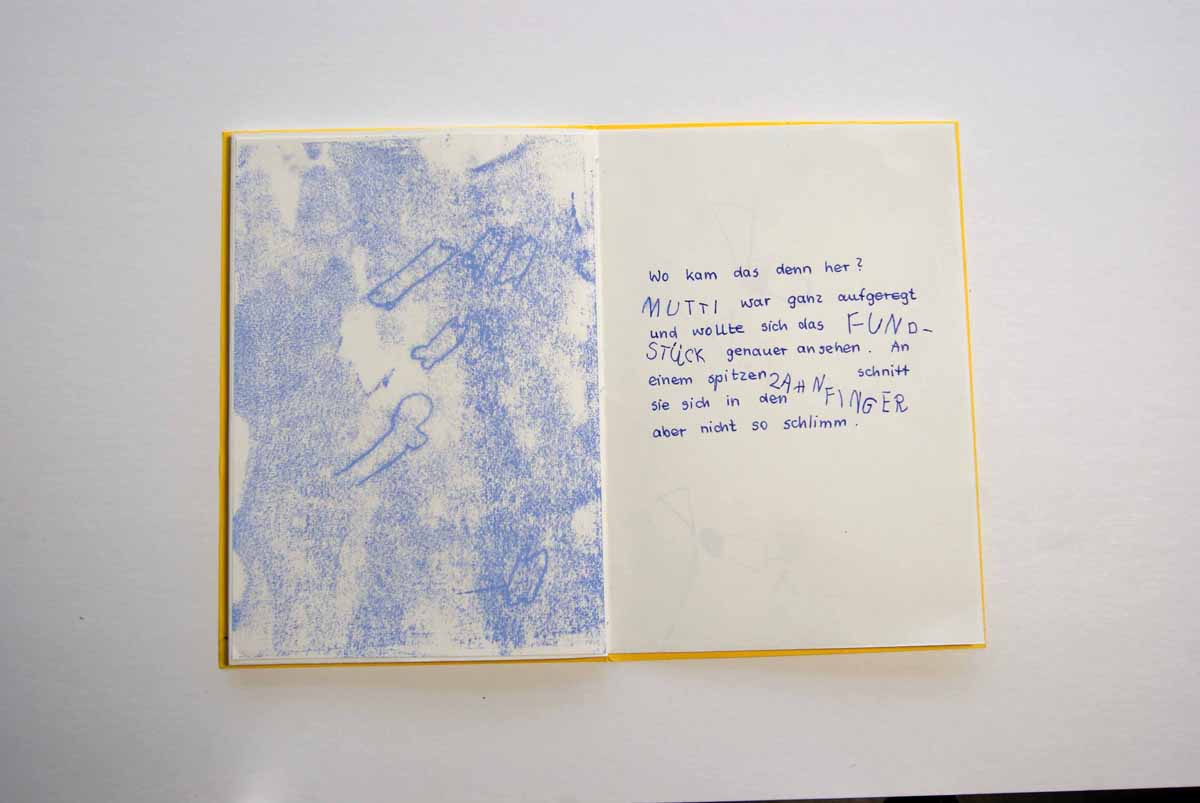 Wo kam das denn her?
MUTTI war ganz aufgeregt
und wollte sich das FUND-
STÜCK genauer ansehen. An
einem spitzen ZAHN schnitt
sie sich in den FINGER
aber nicht so schlimm.